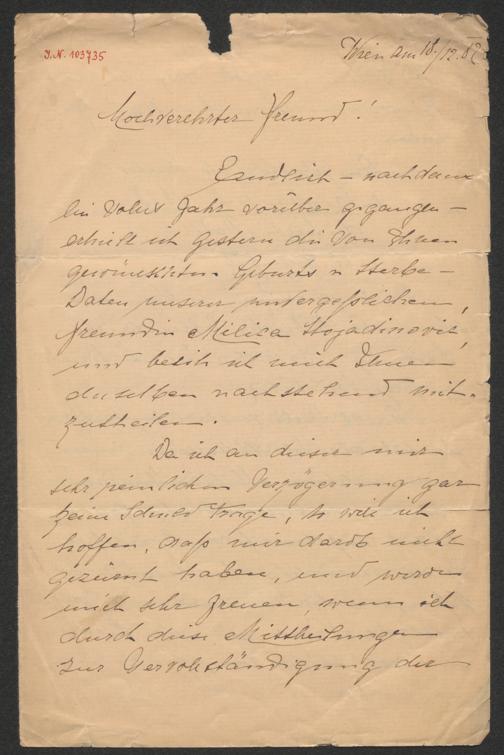 J.N. 103735
Wien am 18/12. 82
Hochverehrter Freund!
Endlich – nachdem
ein volles Jahr vorüber gegangen –
erhielt ich gestern die von Ihnen
gewünschten Geburts u Sterbe-
Daten unserer unvergeßlichen
Freundin Milica Stojadinović,
und beeile ich mich Ihnen
dieselben nachstehend mit-
zutheilen.
Da ich an dieser mir
sehr peinlichen Verzögerung gar
keine Schuld trage, so will ich
hoffen, daß mir darob nicht
gezürnt haben, und werde
mich sehr freuen, wenn ich
durch diese Mittheilungen
zur Vervollständigung der